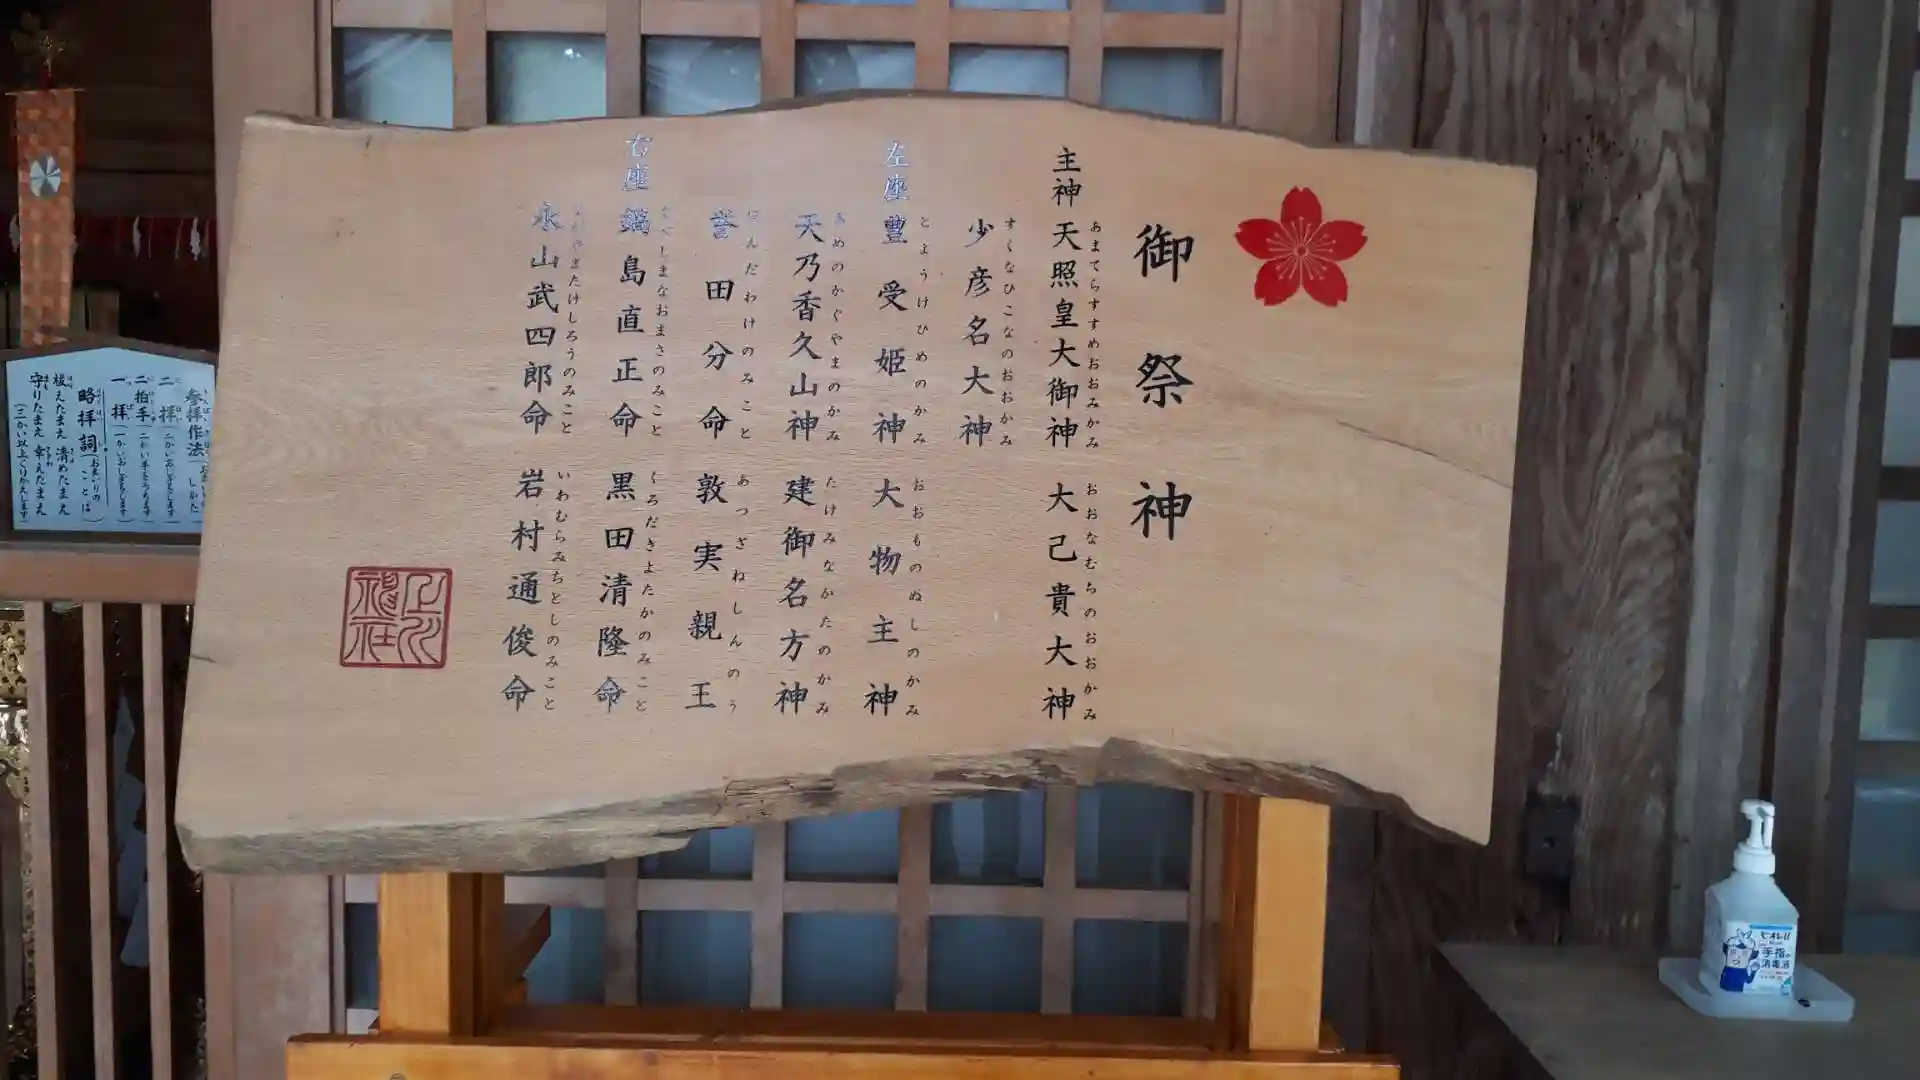 御祭神
主神 天照皇大御神 大己貴大神
あまてらすすめおおみかみ おおなむちのおおかみ
少彦名大神
すくなひこなのおおかみ
左座 豊受姫神 大物主神
とようけひめのかみ おおものぬしのかみ
天乃香久山神 建御名方神
あめのかぐやまのかみ たけみなかたのかみ
誉田分命 敦実親王
ほんだわけのみこと あつざねしんのう
右座 鍋島直正命 黒田清隆命
なべしまなおまさのみこと くろだきよたかのみこと
永山武四郎命 岩村通俊命
ながやまたけしろうのみこと いわむらみちとしのみこと
参拝作法
二拝 二かいおじぎをします
二拍手 二かい手をうちます
一拝 一かいおじぎをします
略拝詞 (おまいりのことば)
祓えたまえ 清めたまえ
守りたまえ 幸えたまえ
(三かい以上くりかえします)
ビオレu
手指の
消毒液